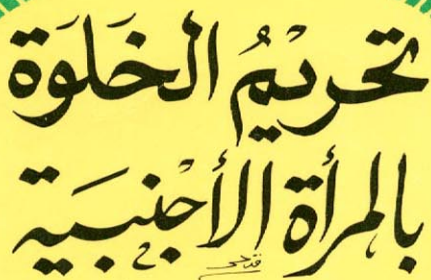 تحريمُ الخَلوَة
بالمرأة الأجنبية